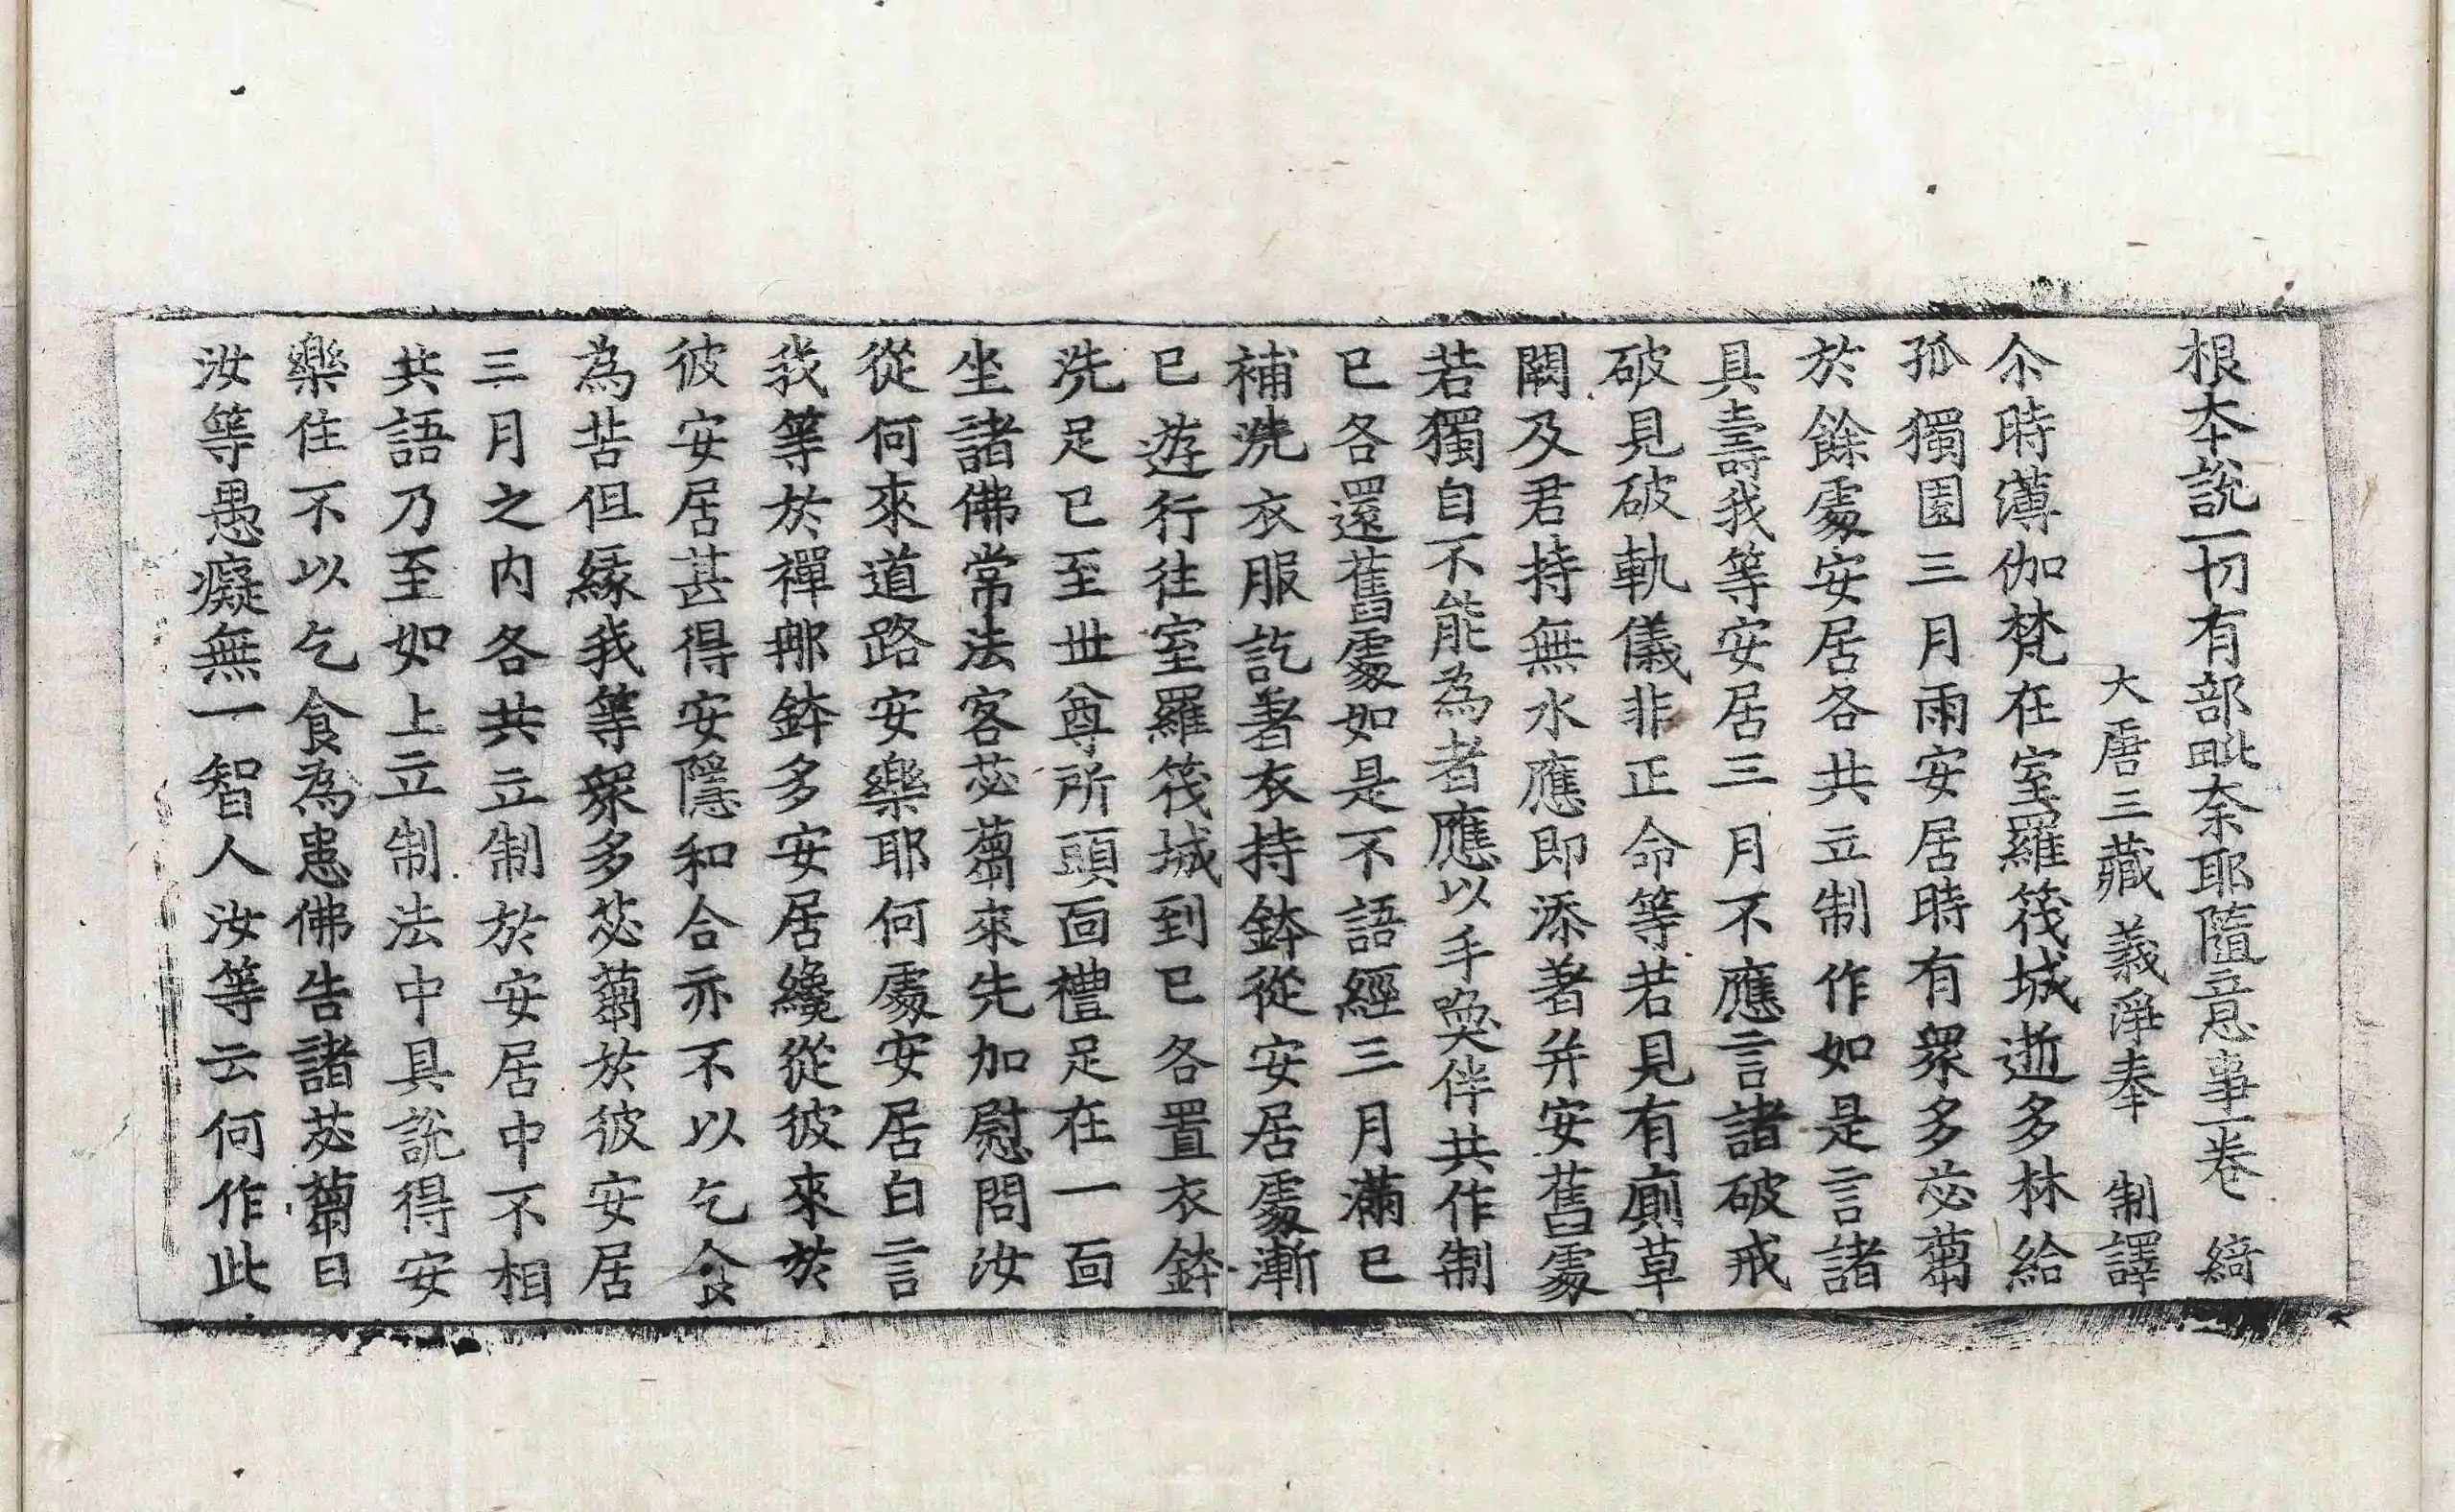 根本說一切有部毗奈耶隨意事一卷 綺
大唐三藏義淨奉 制譯
尒時薄伽梵在室羅筏城逝多林給
孤獨園三月雨安居時有衆多苾蒭
於餘處安居各共立制作如是言諸
具壽我等安居三月不應言諸破戒
破見破軌儀非正命等若見有廁草
闕及君持無水應即添著并安舊處
若獨自不能為者應以手喚伴共作制
已各還舊處如是不語經三月滿已
補洗衣服訖著衣持鉢從安居處漸
已遊行往室羅筏城到已各置衣鉢
洗足已至世尊所頭面禮足在一面
坐諸佛常法客苾蒭來先加慰問汝
從何來道路安樂耶何處安居白言
我等於禪那鉢多安居纔從彼來於
彼安居甚得安隱和合亦不以乞食
為苦但緣我等衆多苾蒭於彼安居
三月之内各共立制於安居中不相
共語乃至如上立制法中具說得安
樂住不以乞食為患佛告諸苾蒭曰
汝等愚癡無一智人汝等云何作此